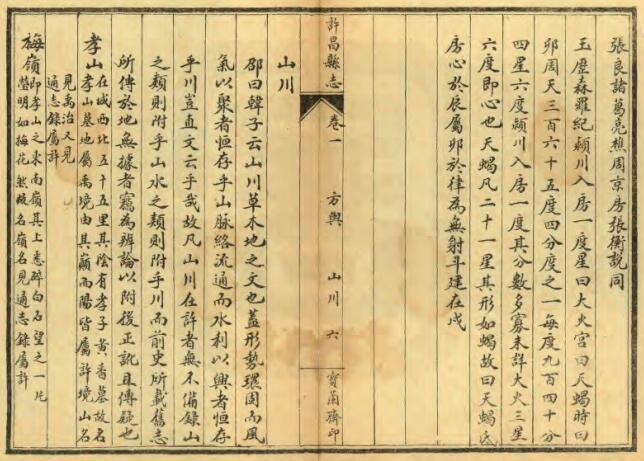 張良諸葛亮樵周京房張衡説同
玉歷森羅紀潁川入房一度星曰大火宫曰天蝎時曰
卯周天三百六十五度四分度之一每度九百四十分
四星六度潁川入房一度其分數多寡未詳大火三星
六度即心也天蝎凡二十一星其形如蝎故曰天蝎氐
房心於辰屬卯於律為無射斗建在戌
許昌縣志
卷一
方輿
山川
六
寶蘭齋印
山川
邵曰韓子云山川草木地之文也蓋形勢環固而風
氣以聚者恒存乎山脉絡流通而水利以興者恒存
乎川豈直文云乎哉故凡山川在許者無不備録山
之類則附乎山水之類則附乎川而前史所載舊志
所傳於地無據者竊為辨論以附後正訛且傳疑也
孝山在城西北五十五里其陰有孝子黃香墓故名
孝山墓地屬禹境由其巔而陽皆屬許境山名
見禹治又見
通志錄屬許
梅嶺即孝山之東南嶺其上悉碎白石望之一片
瑩明如梅花然故名嶺名見通志錄屬許